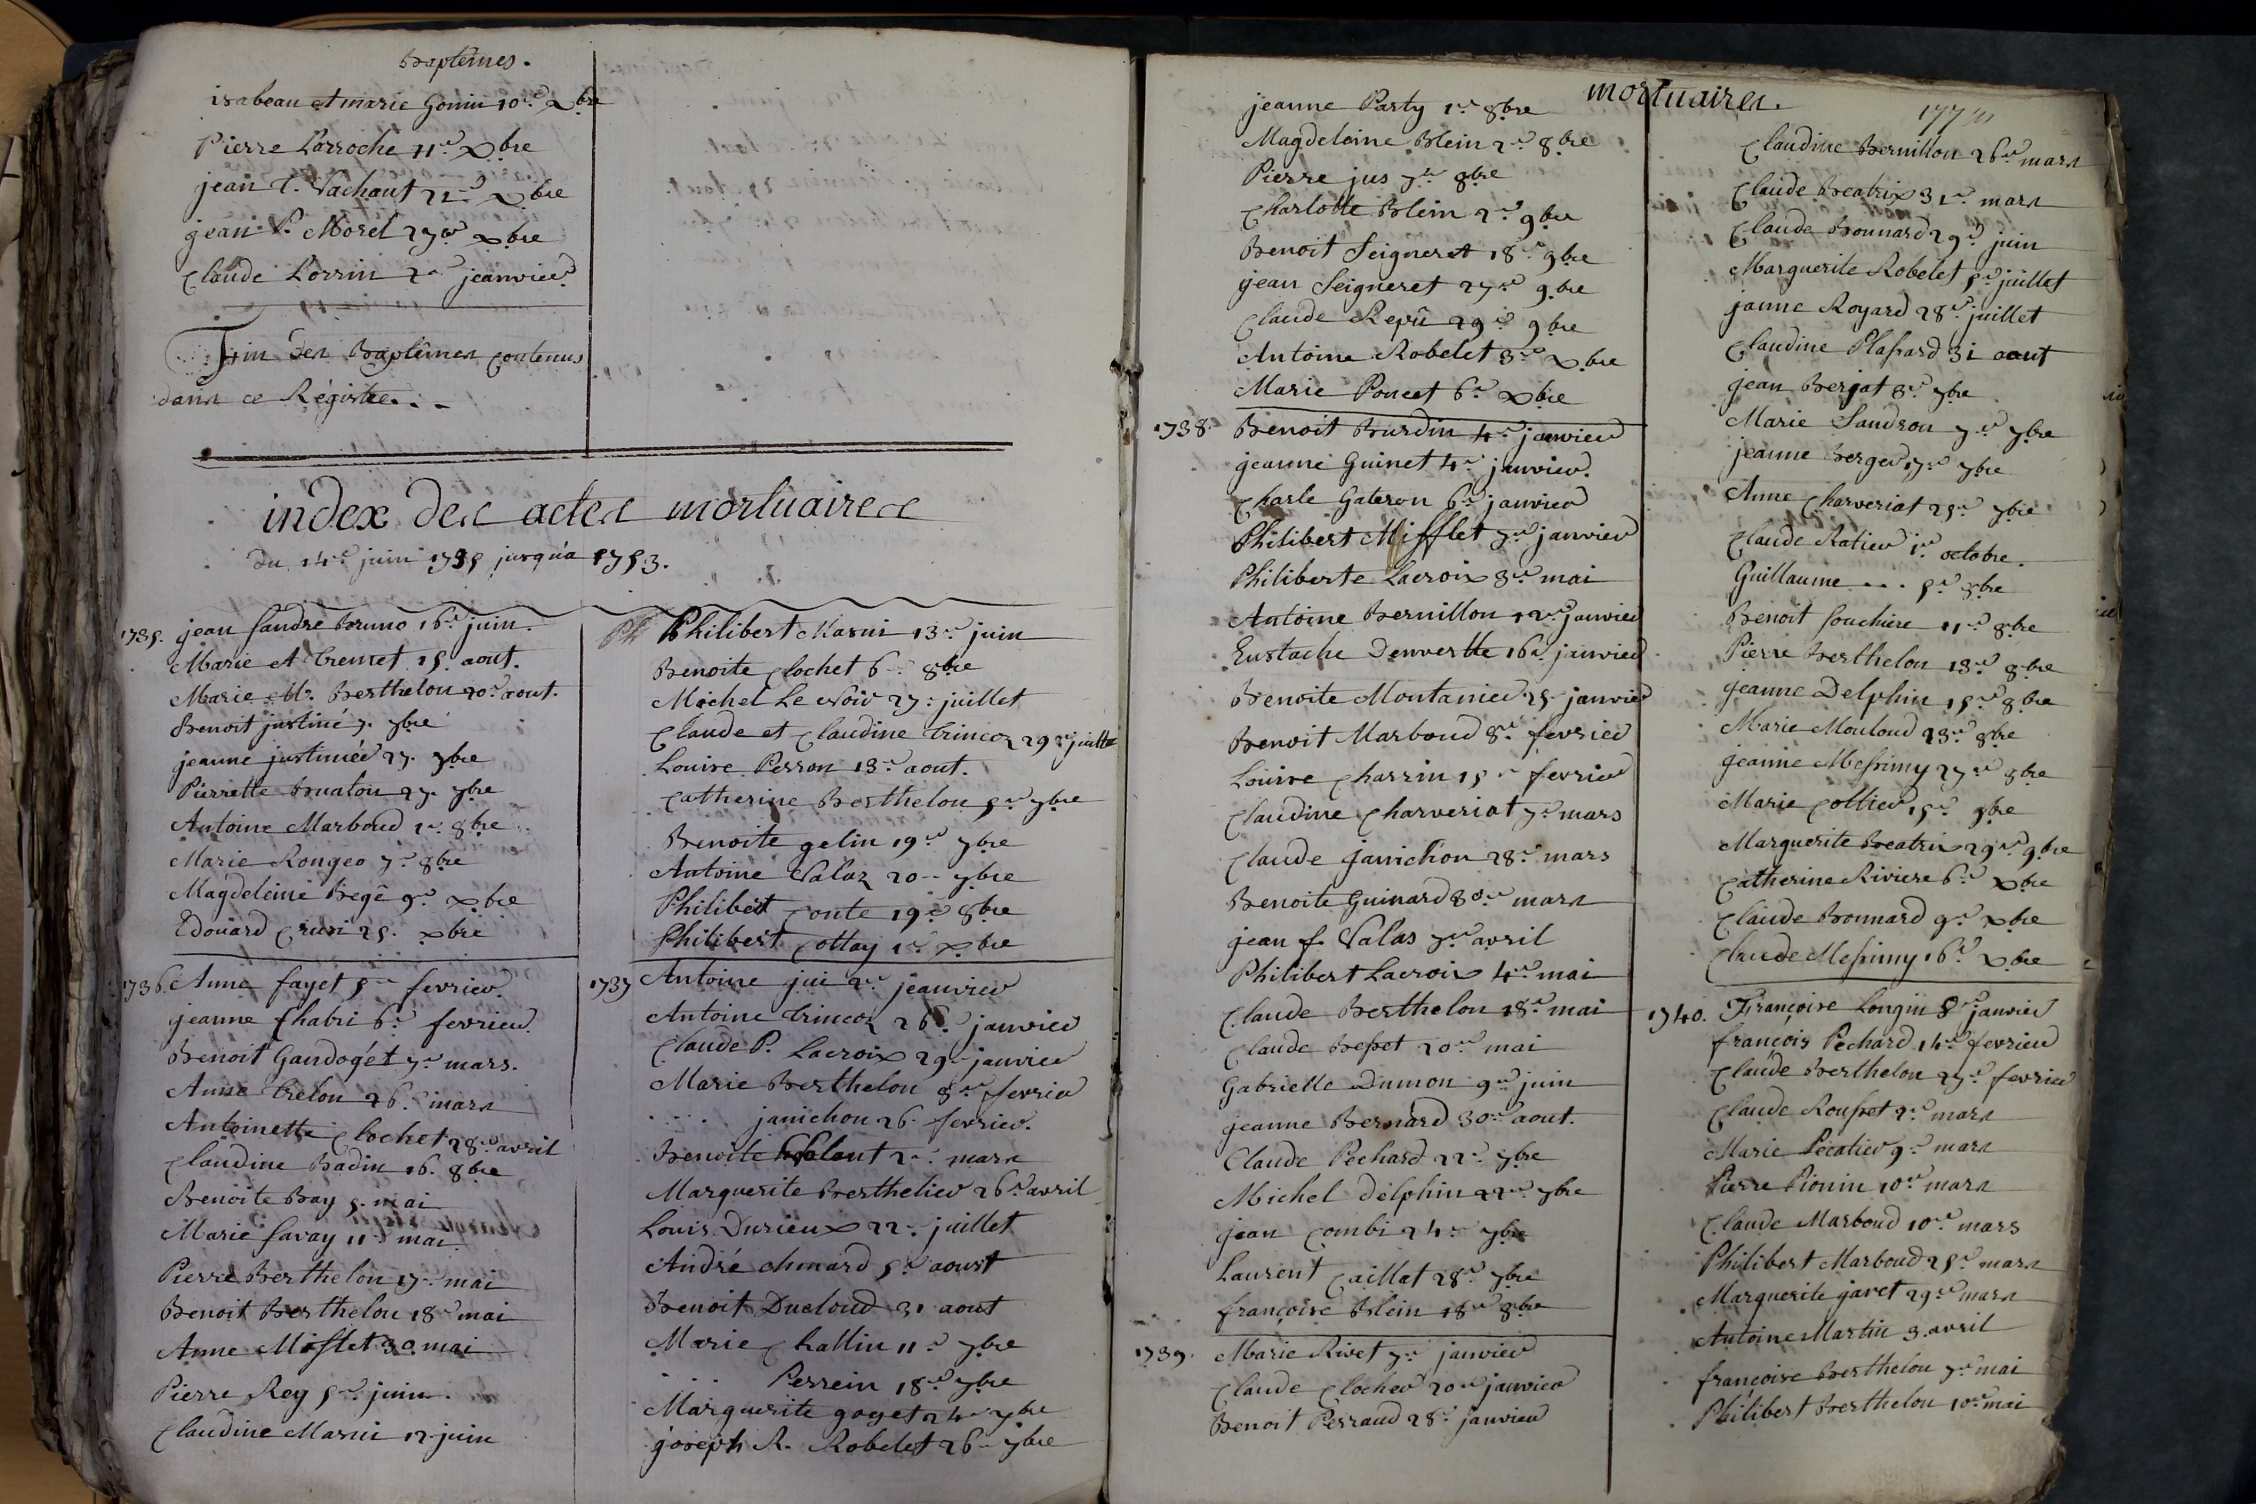 Baptêmes.
isabeau et marie Gonin 10.e xbre
Pierre Larroche 11.e xbre
jean C. Vachant 21.e xbre
jean P. Morel 27.e xbre
Claude Lorrin 2.e jeanvier
Fin des Baptêmes contenus
dans ce Régistre...
index des actes mortuaires
du 14.e juin 1735 jusqu'a 1753.
1735. jean Bruno 16.e juin.
Marie et 15. aout.
Marie M. Berthelon 20.e aout.
Benoit justiné 7. 7bre
jeanne 27. 7bre
Pierrette Bruaton 27. 7bre
Antoine Marboud 1.e 8bre
Marie Rongeo 7.e 8bre
Magdeleine Begê 9.e xbre
Edoüard 25. xbre
1736. Anne fayet 5.e fevrier.
jeanne Chabri 6.e fevrier.
Benoit Gandogét 7.e mars.
Anne trelon 26. mars
Antoinette Clochet 28.e avril
Claudine Badin 16. 8bre
Benoite Bay 5. mai
Marie favay 11.e mai
Pierre Berthelon 17.e mai
Benoit Berthelon 18.e mai
Anne Mifflet 30. mai
Pierre Rey 5.e juin.
Claudine Masni 12. juin
Philibert Masni 13.e juin
Benoite Clochet 6.e 8bre
Michel Le 27.e juillet
Claude et Claudine trincoz 29.e juillet
Louise Perron 13.e aout.
Catherine Berthelon 5.e 7bre
Benoite gelin 19.e 7bre
Antoine Valaz 20.e 7bre
Philibert Conte 19.e 8bre
Philibert Cottay 1.e xbre
1737 Antoine jui 2.e jeanvier
Antoine trincoz 26.e janvier
Claude P. Lacroix 29.e janvier
Marie Berthelon 8.e fevrier
.... janichon 26. fevrier.
Benoite 2.e mars
Marguerite Berthelier 26.e avril
Louis Durieux 22.e juillet
André chinard 5.e aoust
Benoit Ducloud 31 aout
Marie Challin 11.e 7bre
... Perrein 18.e 7bre
Marguerite goyet 24.e 7bre
joseph R. Robelet 26.e 7bre
mortuaires.
jeanne Party 1.e 8bre
Magdeleine Blein 2.e 8bre
Pierre jus 7.e 8bre
Charlotte Blein 2.e 9bre
Benoit Seigneret 18.e 9bre
jean Seigneret 27.e 9bre
Claude Repû 29.e 9bre
Antoine Robelet 3.e xbre
Marie Poncet 6.e xbre
1738. Benoit Burdin 4.e janvier
jeanne Guinet 4.e janvier.
Charle Gateron 6.e janvier
Philibert Mifflet 7.e janvier
Philiberte Lacroix 3.e mai
Antoine Bernillon 12.e janvier
Eustache Denvertte 16.e janvier
Benoite Montanier 25 janvier
Benoit Marboud 8.e fevrier
Louise Charrin 15.e fevrier
Claudine Charveriat 7.e mars
Claude janichon 28.e mars
Benoite Guinard 30.e mars
jean f. Valas 7.e avril
Philibert Lacroix 4.e mai
Claude Berthelon 18.e mai
Claude Besset 20.e mai
Gabrielle Dumon 9.e juin
jeanne Bernard 30.e aout.
Claude Pechard 22.e 7bre
Michel delphin 22.e 7bre
jean Combi 24.e 7bre
Laurent Caillat 28.e 7bre
françoise Blein 18.e 8bre
1739. Marie Rivet 7.e janvier
Claude Clocher 20.e janvier
Benoit Perraud 28.e janvier
Claudine Bernillon 26.e mars
Claude Beatrix 31.e mars
Claude Bonnard 29.e juin
Marguerite Robelet 5.e juillet
janne Royard 28.e juillet
Claudine Plassard 31 aout
jean Berjat 3.e 7bre
Marie Sandron 7.e 7bre
jeanne berger 17.e 7bre
Anne Charveriat 25.e 7bre
Claude Ratier 1.e octobre.
Guillaume ... 5.e 8bre
Benoit souchiere 11.e 8bre
Pierre Berthelon 13.e 8bre
jeanne Delphin 15.e 8bre
Marie Mouloud 23.e 8bre
jeanne Messimy 27.e 8bre
Marie Collier 15.e 9bre
Marguerite Beatrix 29.e 9bre
Catherine Riviere 6.e xbre
Claude Bonnard 9.e xbre
Claude Messimy 16.e xbre
1740. Françoise Longin 8.e janvier
françois Pechard 14.e fevrier
Claude Berthelon 27.e fevrier
Claude Rousset 2.e mars
Marie Pécatier 9.e mars
Pierre Pionin 10.e mars
Claude Marboud 10.e mars
Philibert Marboud 25.e mars
Marguerite javet 29.e mars
Antoine Martin 3. avril
françoise Berthelon 7.e mai
Philibert Berthelon 10.e mai